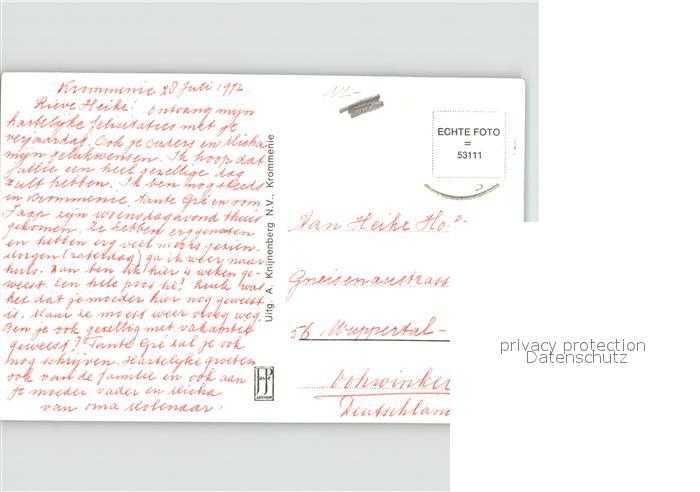 Krommenie 28 Juli 1972.
Lieve Heike! Ontvang mijn
hartelijke felicitaties met je
verjaardag. Ook je ouders en Micha
mijn gelukwensen. Ik hoop dat
jullie een heel gezellige dag
zult hebben. Ik ben nog steeds
in Krommenie, tante Gré en oom
Jaap zijn woensdagavond thuis
gekomen. Ze hebben erg genoten
en hebben erg veel moois gezien.
Morgen (zaterdag) ga ik weer naar
huis. Dan ben ik hier 4 weken ge-
weest. Een hele poos hè! Leuk was
het dat je moeder hier nog geweest
is. Maar ze moest weer vroeg weg.
Ben je ook gezellig met vakantie
geweest? Tante Gré zal je ook
nog schrijven. Hartelijke groeten
ook van de familie en ook aan
je moeder vader en Micha
van oma Molenaar.
Uitg. A. Knijnenberg N.V., Krommenie
JosPé
ARNHEM
NL-
ECHTE FOTO
=
53111
Aan Heike Ho
Gneisenaustrass
56 Wuppertal-
Vohwinkel
Deutschland
privacy protection
Datenschutz